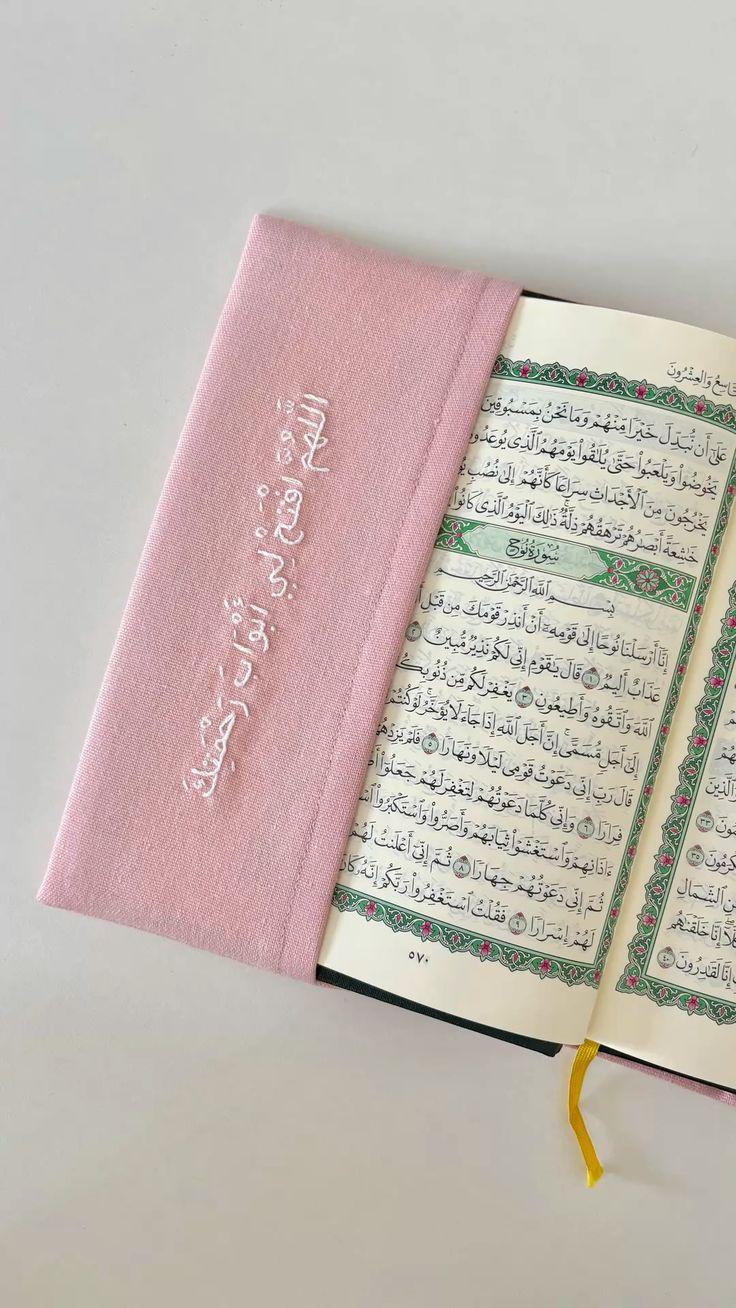 اللَّهُمَّ افْتَحْ لِي أَبْوَابَ رَحْمَتِكَ
وَالْعِشْرُونَ
عَلَىٰٓ أَن نُّبَدِّلَ خَيْرًا مِّنْهُمْ وَمَا نَحْنُ بِمَسْبُوقِينَ
يَخُوضُوا۟ وَيَلْعَبُوا۟ حَتَّىٰ يُلَـٰقُوا۟ يَوْمَهُمُ ٱلَّذِى يُوعَدُو
يَخْرُجُونَ مِنَ ٱلْأَجْدَاثِ سِرَاعًا كَأَنَّهُمْ إِلَىٰ نُصُبٍ
خَـٰشِعَةً أَبْصَـٰرُهُمْ تَرْهَقُهُمْ ذِلَّةٌ ذَٰلِكَ ٱلْيَوْمُ ٱلَّذِى كَانُوا۟
سُورَةُ نُوحٍ
بِسْمِ ٱللَّهِ ٱلرَّحْمَـٰنِ ٱلرَّحِيمِ
إِنَّآ أَرْسَلْنَا نُوحًا إِلَىٰ قَوْمِهِۦٓ أَنْ أَنذِرْ قَوْمَكَ مِن قَبْلِ
عَذَابٌ أَلِيمٌ ١ قَالَ يَـٰقَوْمِ إِنِّى لَكُمْ نَذِيرٌ مُّبِينٌ ٢
ٱللَّهَ وَٱتَّقُوهُ وَأَطِيعُونِ ٣ يَغْفِرْ لَكُم مِّن ذُنُوبِكُ
إِلَىٰٓ أَجَلٍ مُّسَمًّى إِنَّ أَجَلَ ٱللَّهِ إِذَا جَآءَ لَا يُؤَخَّرُ لَوْ كُنتُمْ
قَالَ رَبِّ إِنِّى دَعَوْتُ قَوْمِى لَيْلًا وَنَهَارًا ٥ فَلَمْ يَزِدْهُ
فِرَارًا ٦ وَإِنِّى كُلَّمَا دَعَوْتُهُمْ لِتَغْفِرَ لَهُمْ جَعَلُوٓا۟
ءَاذَانِهِمْ وَٱسْتَغْشَوْا۟ ثِيَابَهُمْ وَأَصَرُّوا۟ وَٱسْتَكْبَرُوا۟
ثُمَّ إِنِّى دَعَوْتُهُمْ جِهَارًا ٨ ثُمَّ إِنِّىٓ أَعْلَنتُ لَهُمْ
لَهُمْ إِسْرَارًا ٩ فَقُلْتُ ٱسْتَغْفِرُوا۟ رَبَّكُمْ إِنَّهُۥ كَانَ
٥٧٠
ٱلَّذِينَ
٣٣
٣٥
عَنِ ٱلشِّمَالِ
كَلَّآ إِنَّا خَلَقْنَـٰهُم
إِنَّا لَقَـٰدِرُونَ ٤٠